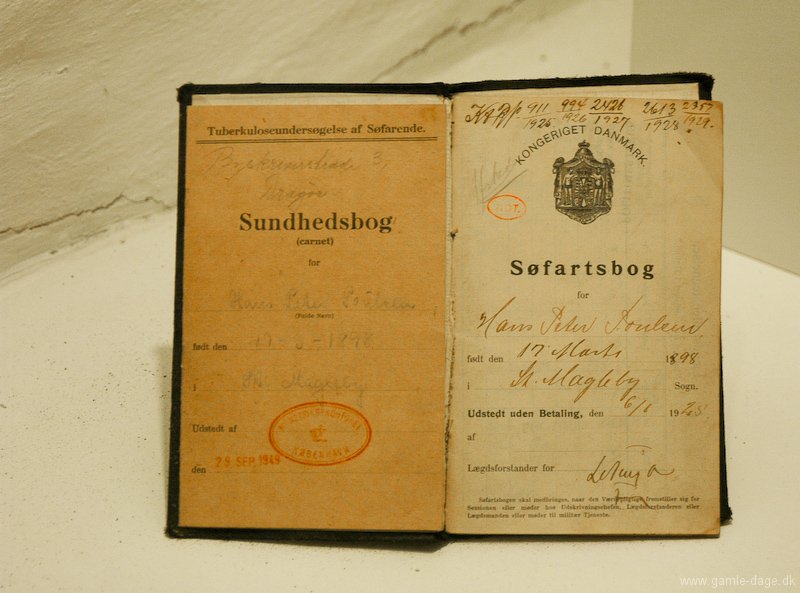 Tuberkuloseundersøgelse af Søfarende.
Sundhedsbog
(carnet)
for
Hans Peter Poulsen
(Fulde Navn)
født den 17-3-1898
i St. Magleby
Udstedt af
KØBENHAVN
den 29 SEP 1949
911 994 2426 2613 2357
1925 1926 1927 1928 1929.
KONGERIGET DANMARK.
Søfartsbog
for
Hans Peter Poulsen
født den 17 Marts 1898
i St. Magleby Sogn.
Udstedt uden Betaling, den 6/1 1925
af
Lægdsforstander for
Søfartsbogen skal medbringes, naar den Værnepligtige fremstiller sig for
Sessionen eller møder hos Udskrivningschefen, Lægdsforstanderen eller
Lægdsmanden eller møder til militær Tjeneste.
www.gamle-dage.dk